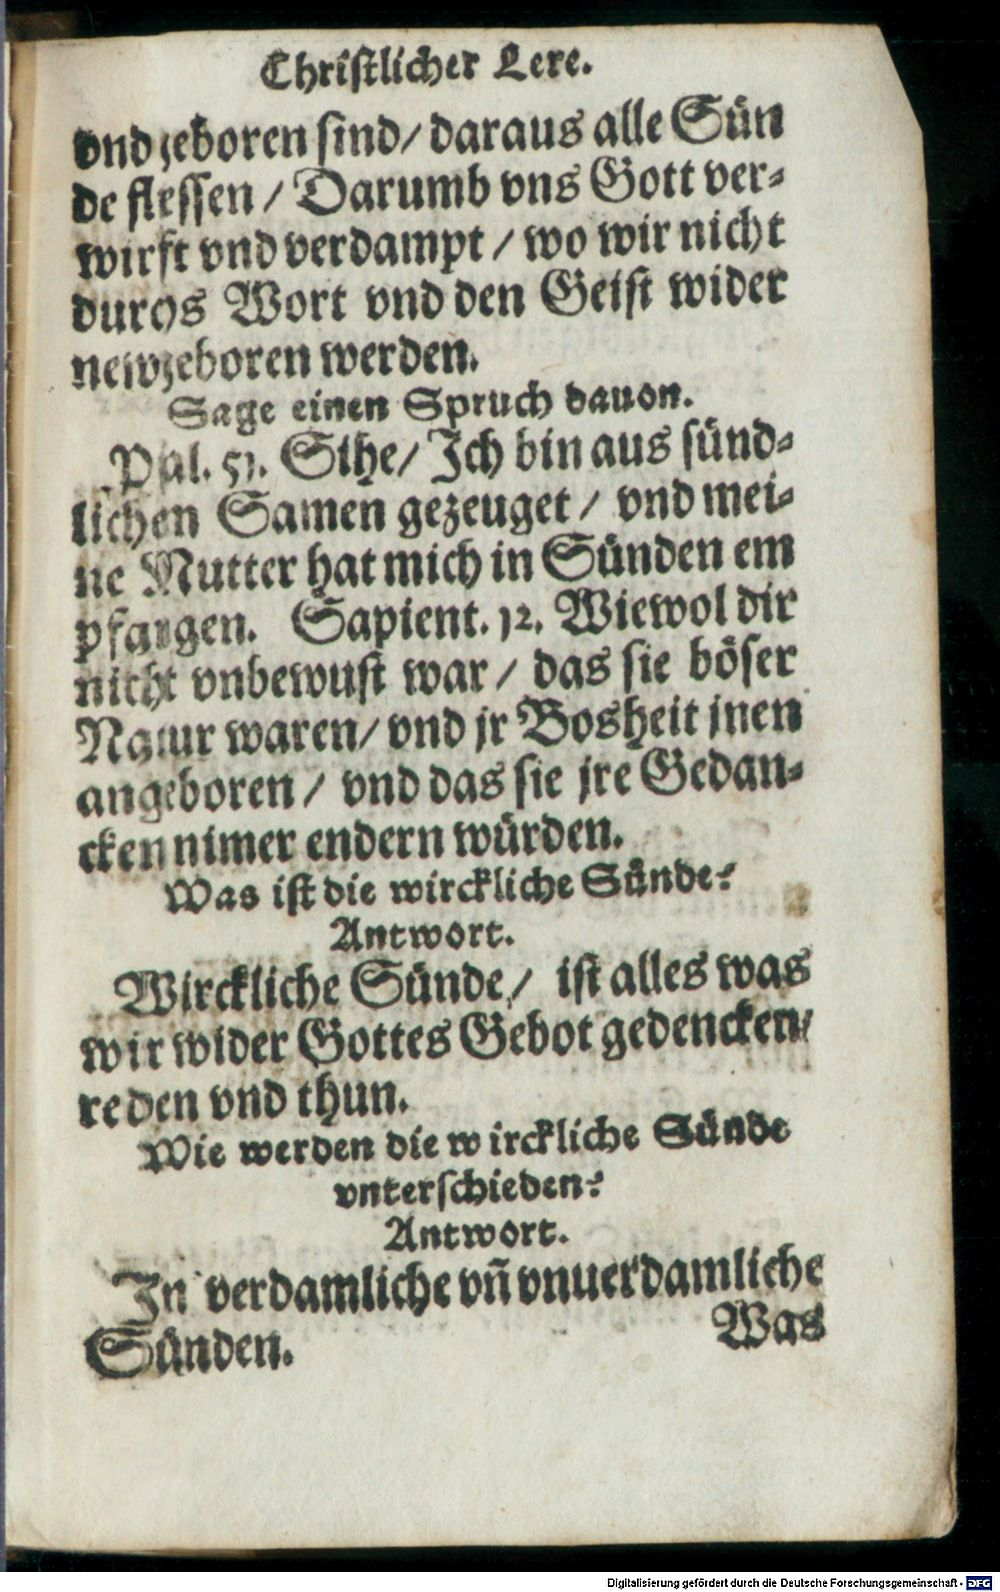 Christlicher Lere.
vnd geboren sind/ daraus alle Sün
de flessen / Darumb vns Gott ver-
wirft vnd verdampt / wo wir nicht
durchs Wort vnd den Geist wider
newgeboren werden.
Sage einen Spruch dauon.
Psal. 51. Sihe/ Ich bin aus sünd-
lichen Samen gezeuget / vnd mei-
ne Mutter hat mich in Sünden em
pfangen. Sapient. 12. Wiewol dir
nicht vnbewust war / das sie böser
Natur waren/ vnd jr Bosheit jnen
angeboren / vnd das sie jre Gedan-
cken nimer endern würden.
Was ist die wirckliche Sünde?
Antwort.
Wirckliche Sünde / ist alles was
wir wider Gottes Gebot gedencken/
reden vnd thun.
Wie werden die wirckliche Sünde
vnterschieden?
Antwort.
In verdamliche vñ vnuerdamliche
Sünden.
Was
Digitalisierung gefördert durch die Deutsche Forschungsgemeinschaft - DFG